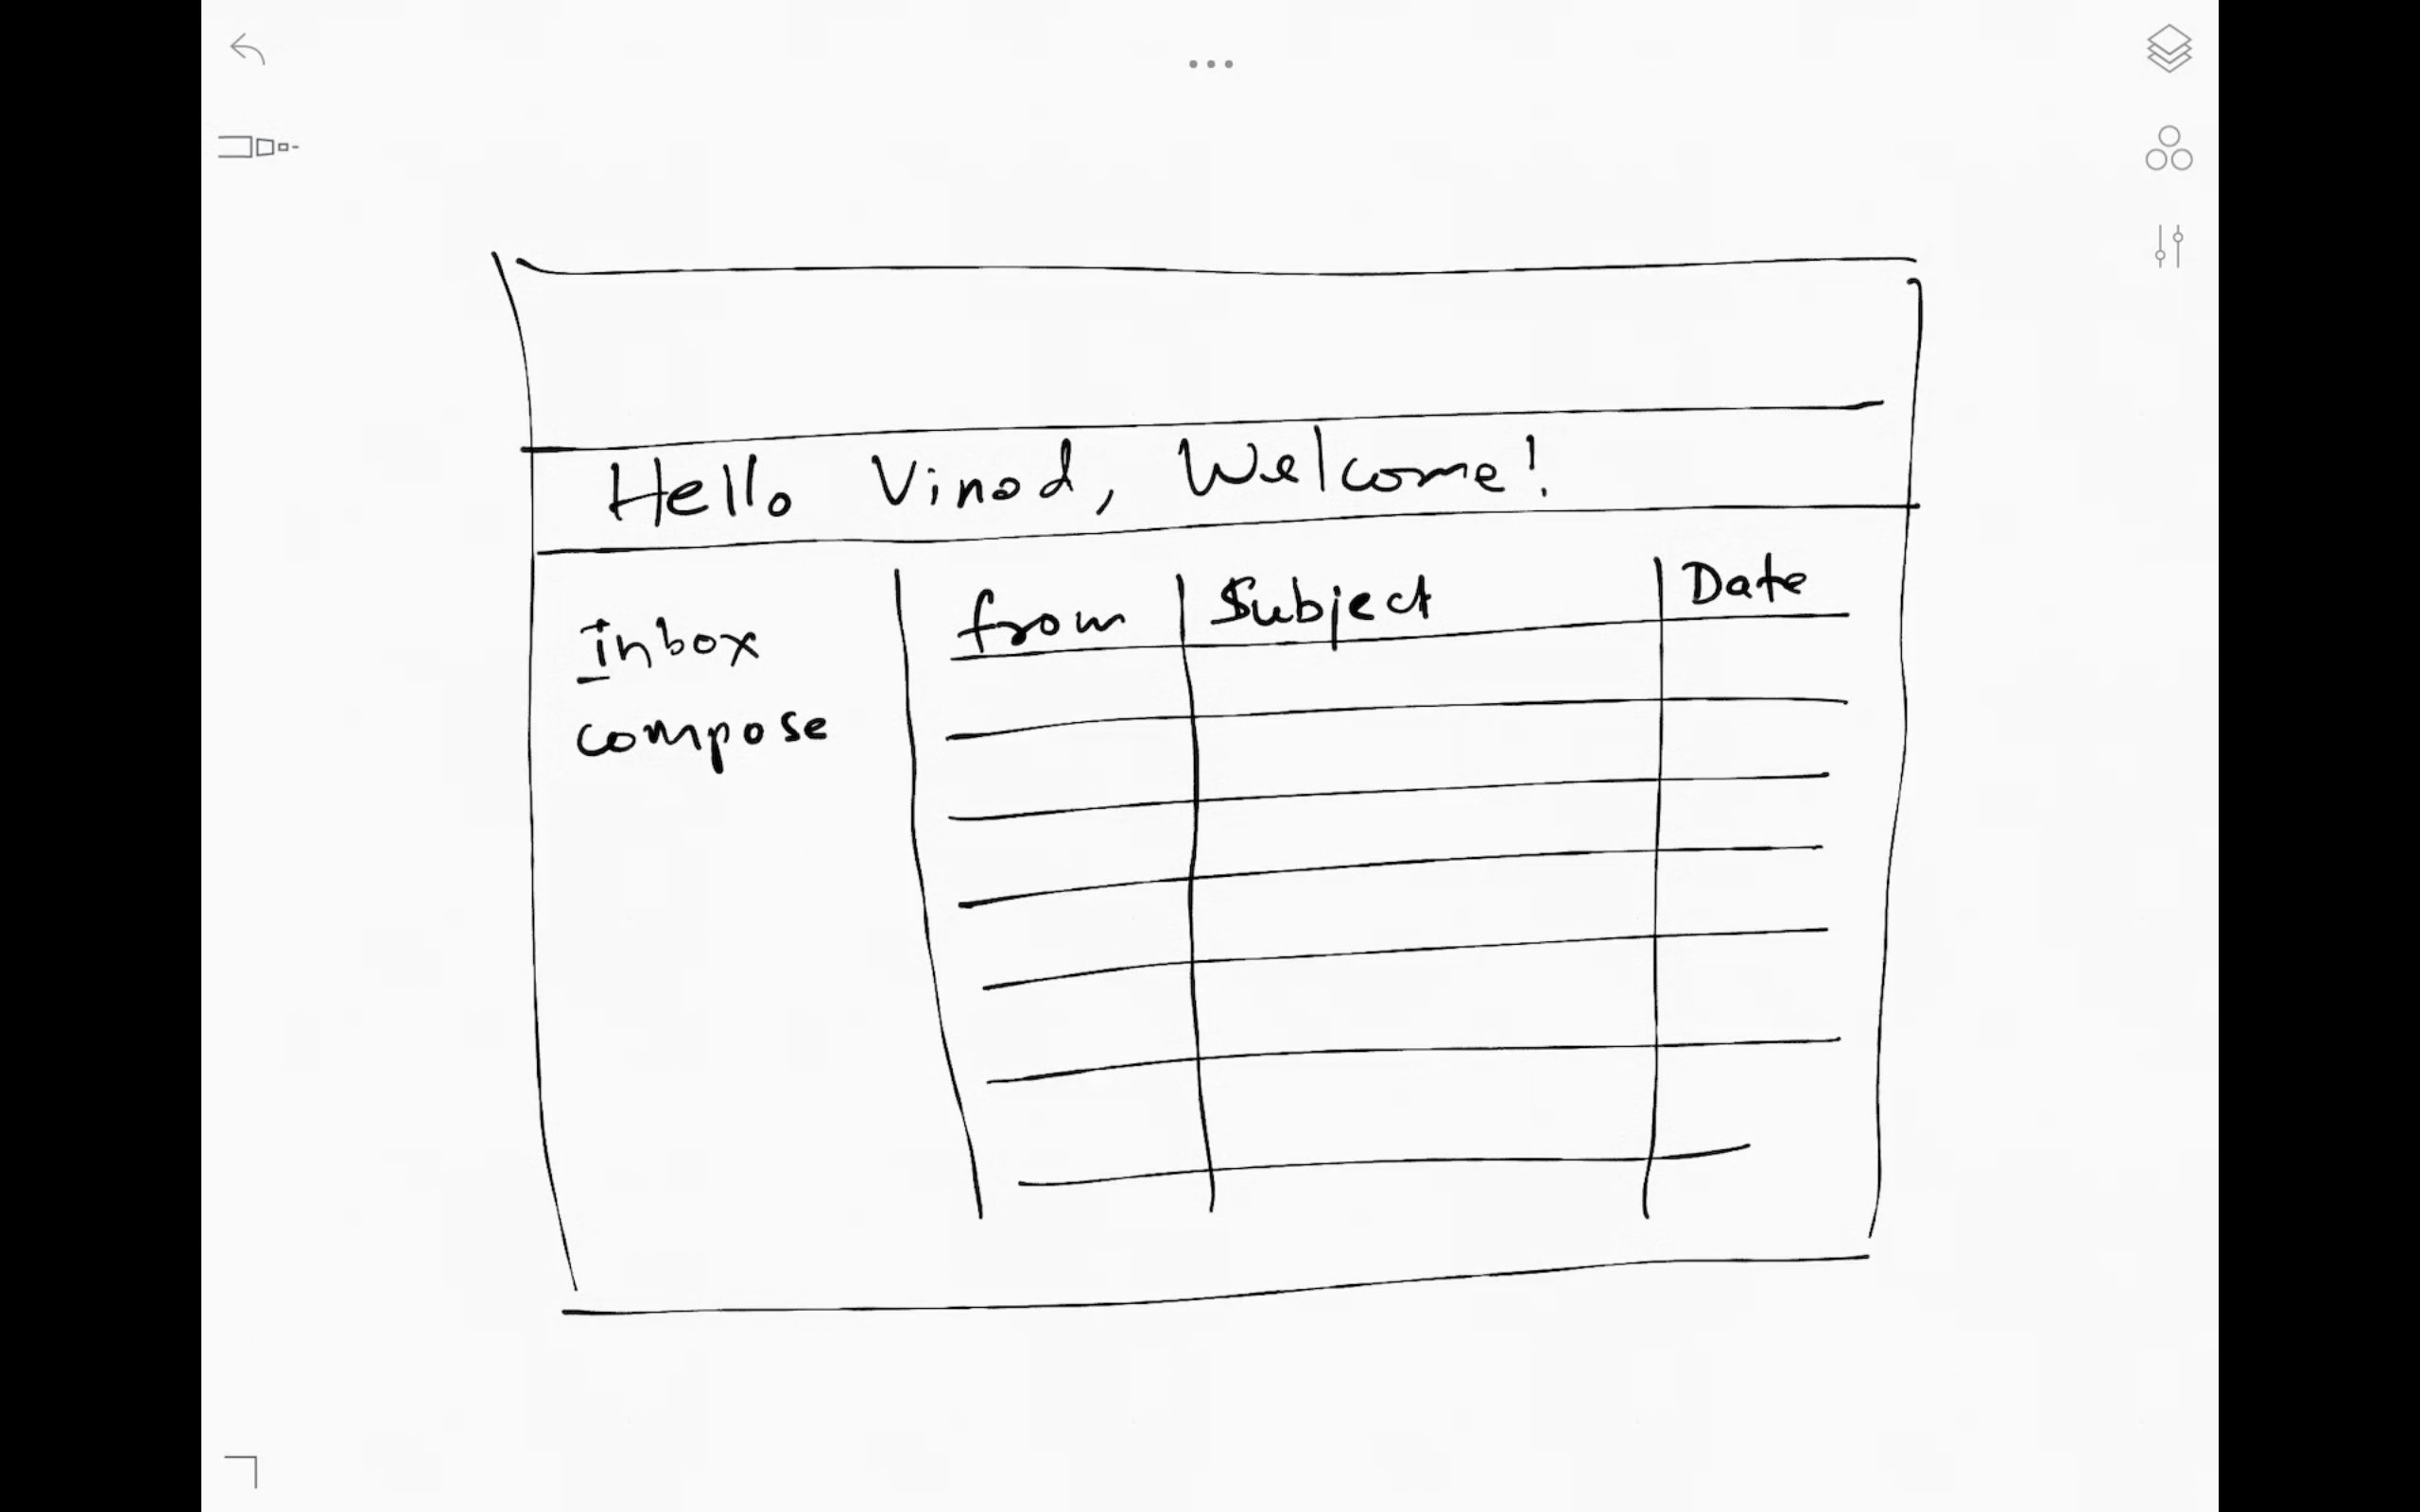 Hello Vinod, Welcome!
inbox
compose
from Subject Date